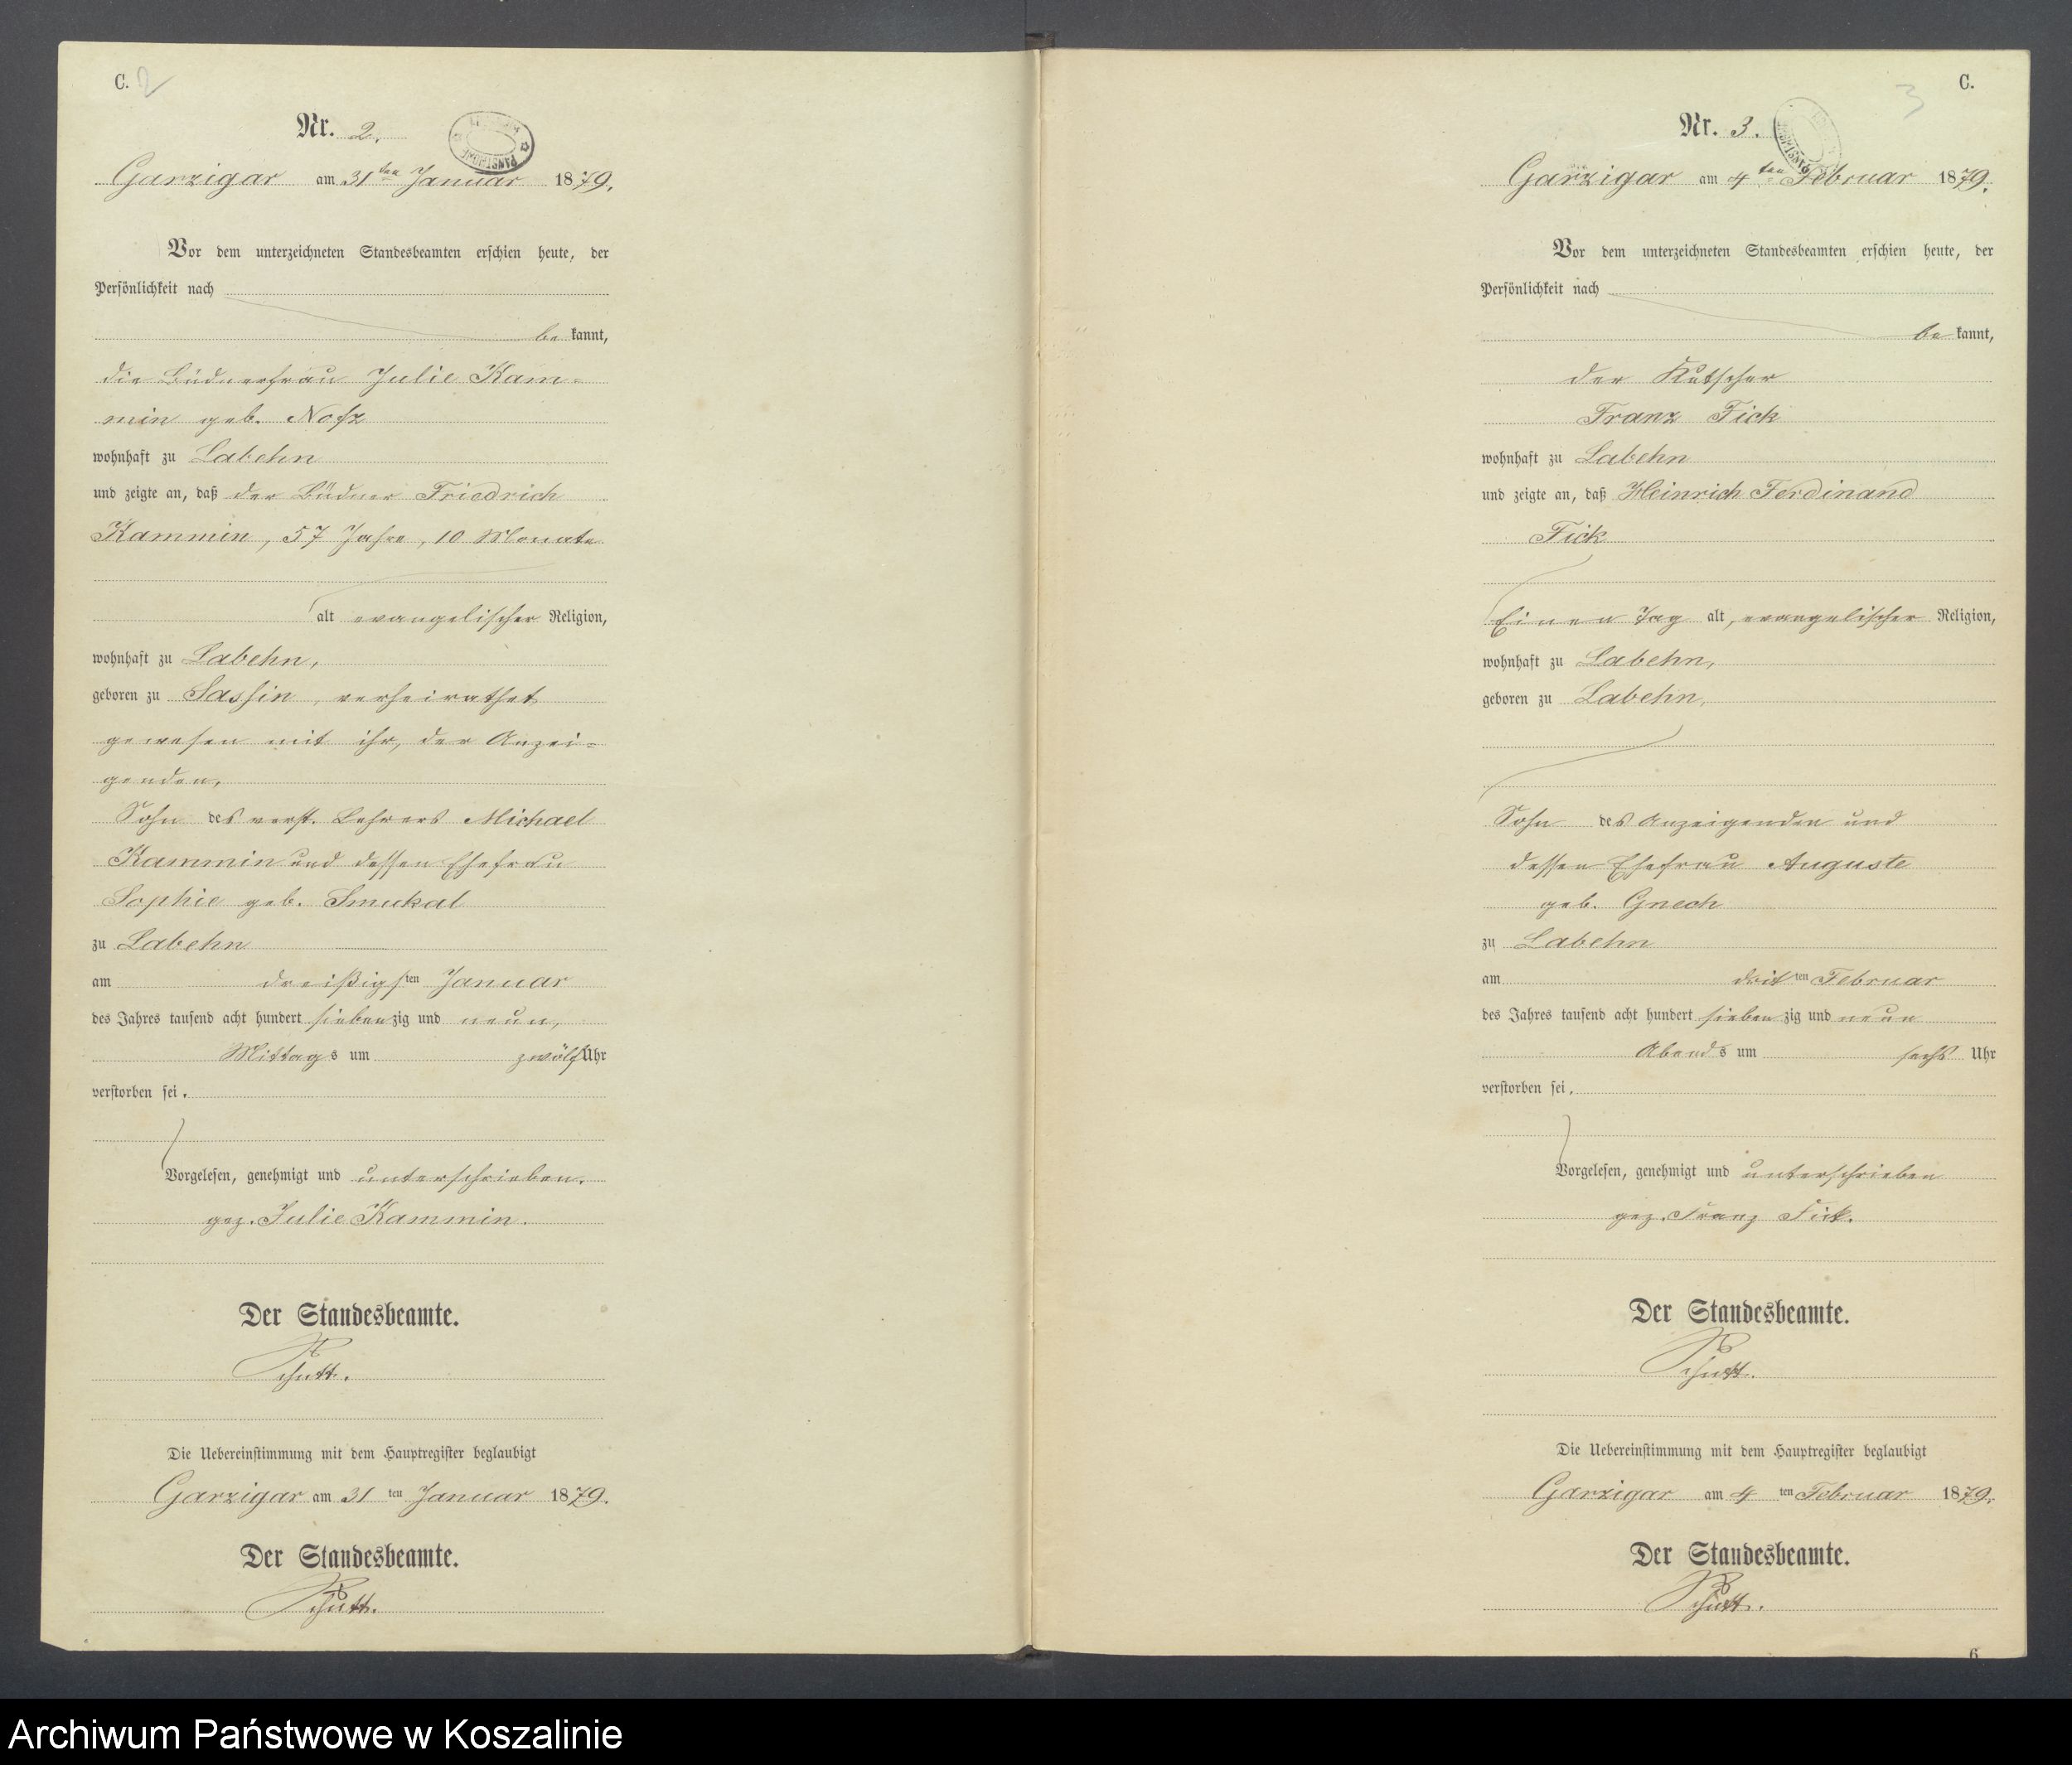 C. 2
Nr. 2.
Garzigar am 31ten Januar 1879.
Vor dem unterzeichneten Standesbeamten erschien heute, der
Persönlichkeit nach
bekannt,
die Büdnerfrau Julie Kam=
min geb. Nofz
wohnhaft zu Labehn
und zeigte an, daß der Büdner Friedrich
Kammin, 57 Jahre, 10 Monate
alt evangelischer Religion,
wohnhaft zu Labehn,
geboren zu Sassin, verheirathet
gewesen mit ihr, der Anzei=
genden,
Sohn des verst. Lehrers Michael
Kammin und dessen Ehefrau
Sophie geb. Smukal
zu Labehn
am dreißigsten Januar
des Jahres tausend acht hundert siebenzig und neun,
Mittags um zwölf Uhr
verstorben sei.
Vorgelesen, genehmigt und unterschrieben.
gez. Julie Kammin.
Der Standesbeamte.
Schutt.
Die Uebereinstimmung mit dem Hauptregister beglaubigt
Garzigar am 31ten Januar 1879.
Der Standesbeamte.
Schutt.
3 C.
Nr. 3.
Garzigar am 4ten Februar 1879.
Vor dem unterzeichneten Standesbeamten erschien heute, der
Persönlichkeit nach
bekannt,
der Kutscher
Franz Fick
wohnhaft zu Labehn
und zeigte an, daß Heinrich Ferdinand
Fick
Einen Tag alt, evangelischer Religion,
wohnhaft zu Labehn,
geboren zu Labehn,
Sohn des Anzeigenden und
dessen Ehefrau Auguste
geb. Gnech
zu Labehn
am dritten Februar
des Jahres tausend acht hundert siebenzig und neun
Abends um sechs Uhr
verstorben sei.
Vorgelesen, genehmigt und unterschrieben
gez. Franz Fick.
Der Standesbeamte.
Schutt.
Die Uebereinstimmung mit dem Hauptregister beglaubigt
Garzigar am 4ten Februar 1879.
Der Standesbeamte.
Schutt.
6
Archiwum Państwowe w Koszalinie